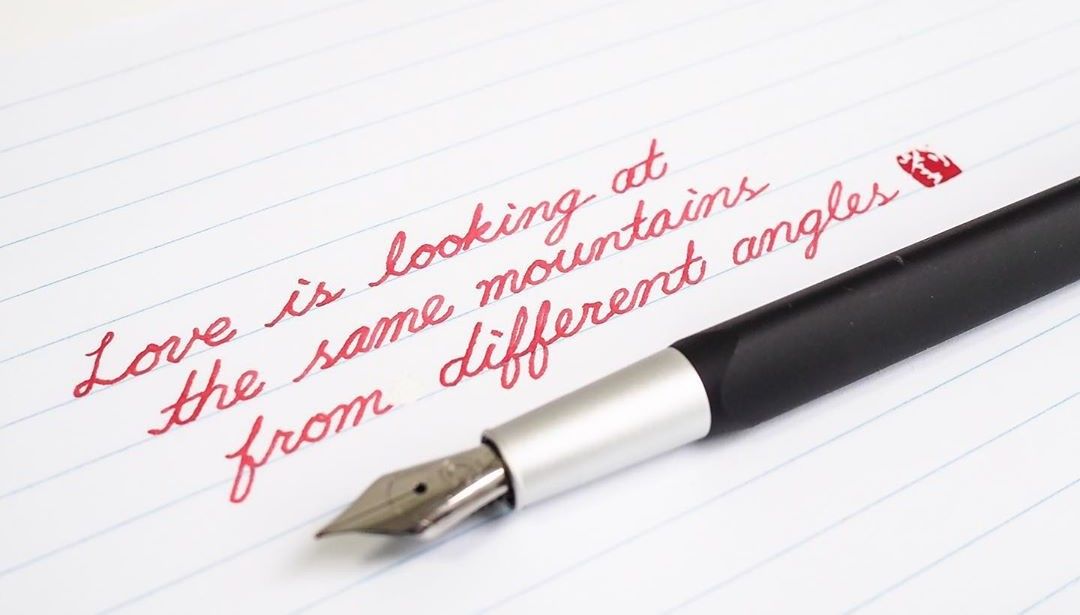 Love is looking at
the same mountains
from different angles